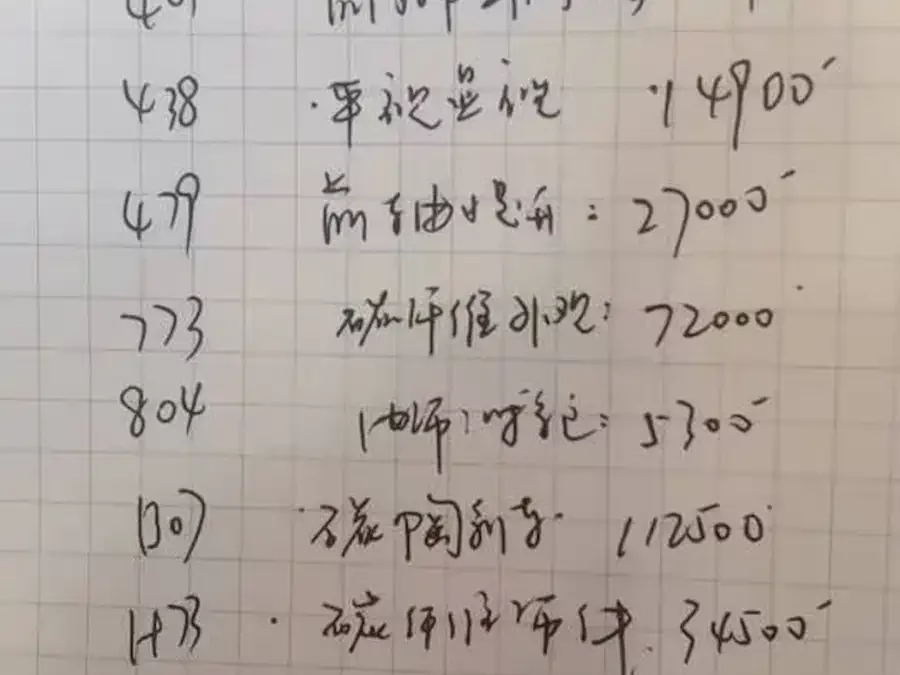 438 ·平视显视 ·14900
479 前轴提升:27000
773 碳纤维外观:72000
804 卡钳喷色:5300
1307 ·碳陶刹车· 112500
1473 · 碳纤维饰件 34500